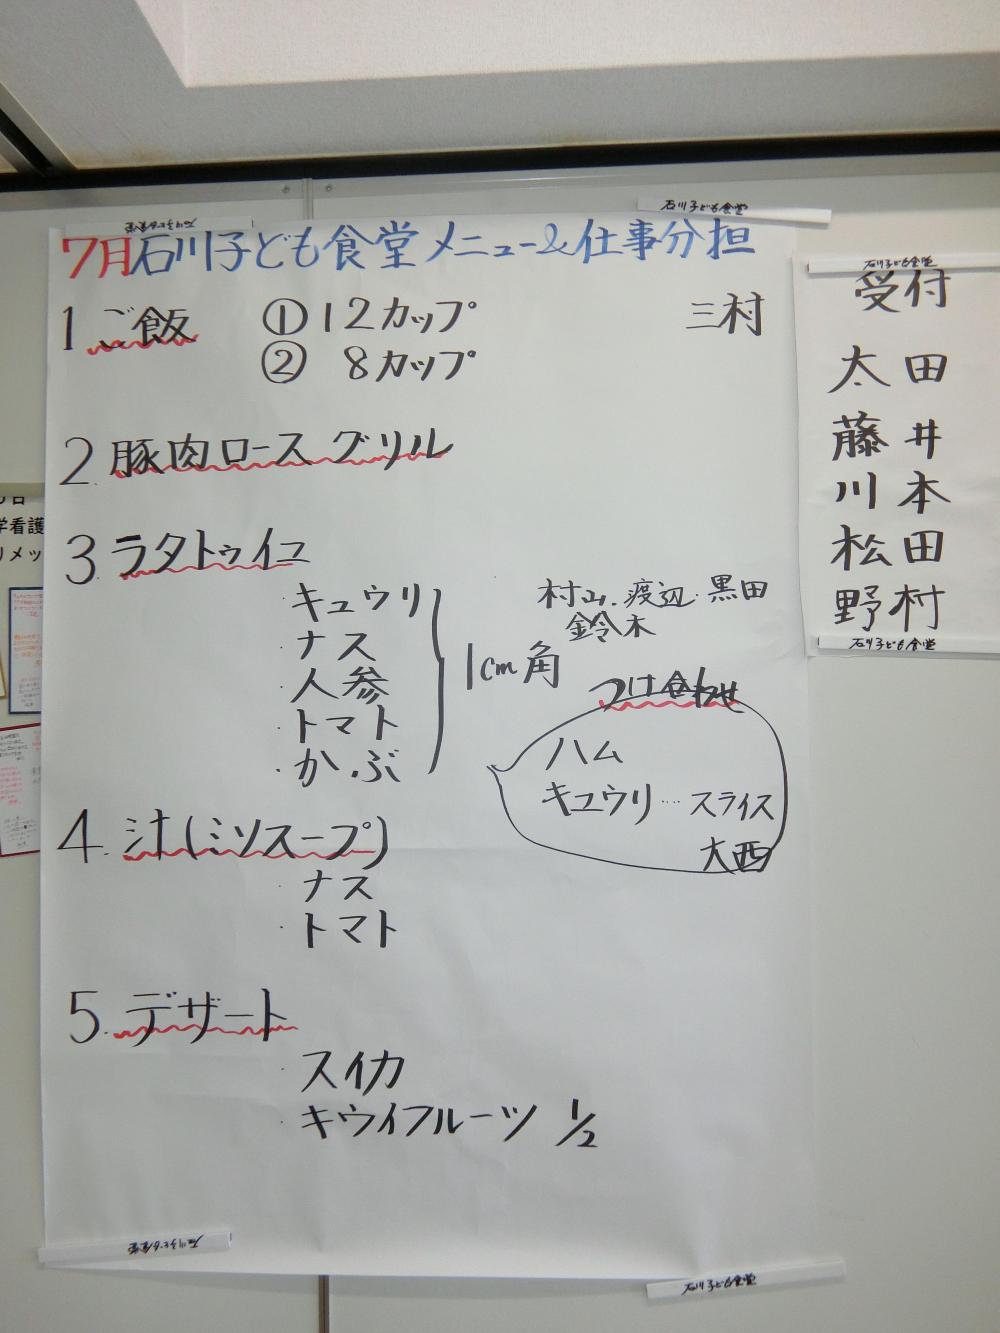 石川子ども食堂
7月石川子ども食堂メニュー&仕事分担
1 ご飯 ① 12カップ 三村
② 8カップ
2. 豚肉ロース グリル
3. ラタトゥイユ
・キュウリ
・ナス
・人参
・トマト
・かぶ
1cm角
村山・渡辺・黒田
鈴木
つけ合わせ
ハム
キュウリ…スライス
大西
4. 汁(ミソスープ)
・ナス
・トマト
5. デザート
・スイカ
・キウイフルーツ 1/2
石川子ども食堂
石川子ども食堂
石川子ども食堂
受付
太田
藤井
川本
松田
野村
石川子ども食堂
学看護
りメッ